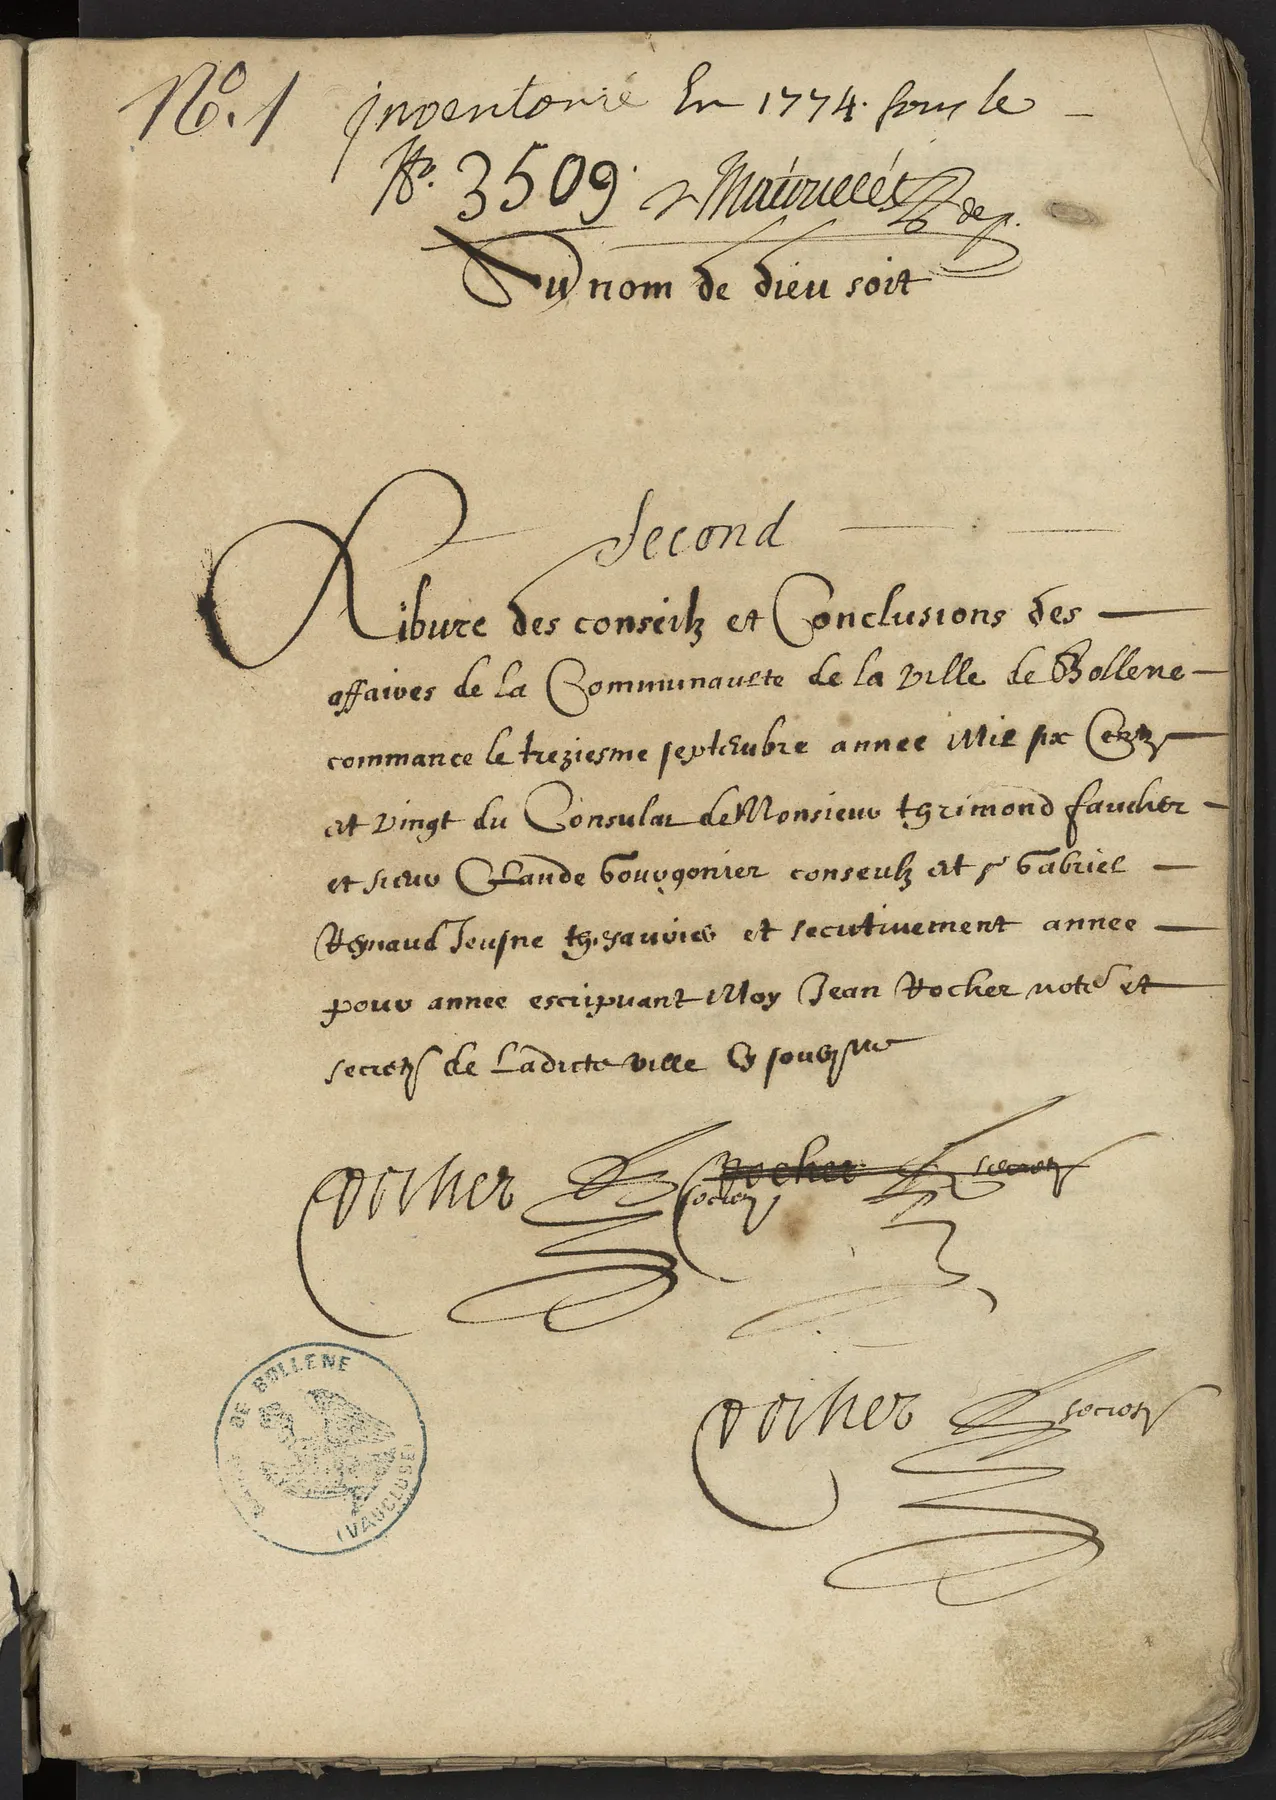 No. 1 Inventorié En 1774. sous le
No. 3509.
Au nom de dieu soit
Second
Libure des conseilz et Conclusions des
affaires de la Communaulte de la ville de Bollene
commance le treziesme septembre annee Mil six Centz
et vingt du Consulat de Monsieur thrimond faucher
et sieur Claude Gourgonier conseulz et sr Gabriel
Reynaud Jeusne thesaurier et secutivement annee
pour annee escripvant Moy Jean Rocher notre et
secretre de Ladicte ville
Rocher secretre Rocher secretre
Rocher secretre
DE BOLLENE
(VAUCLUSE)